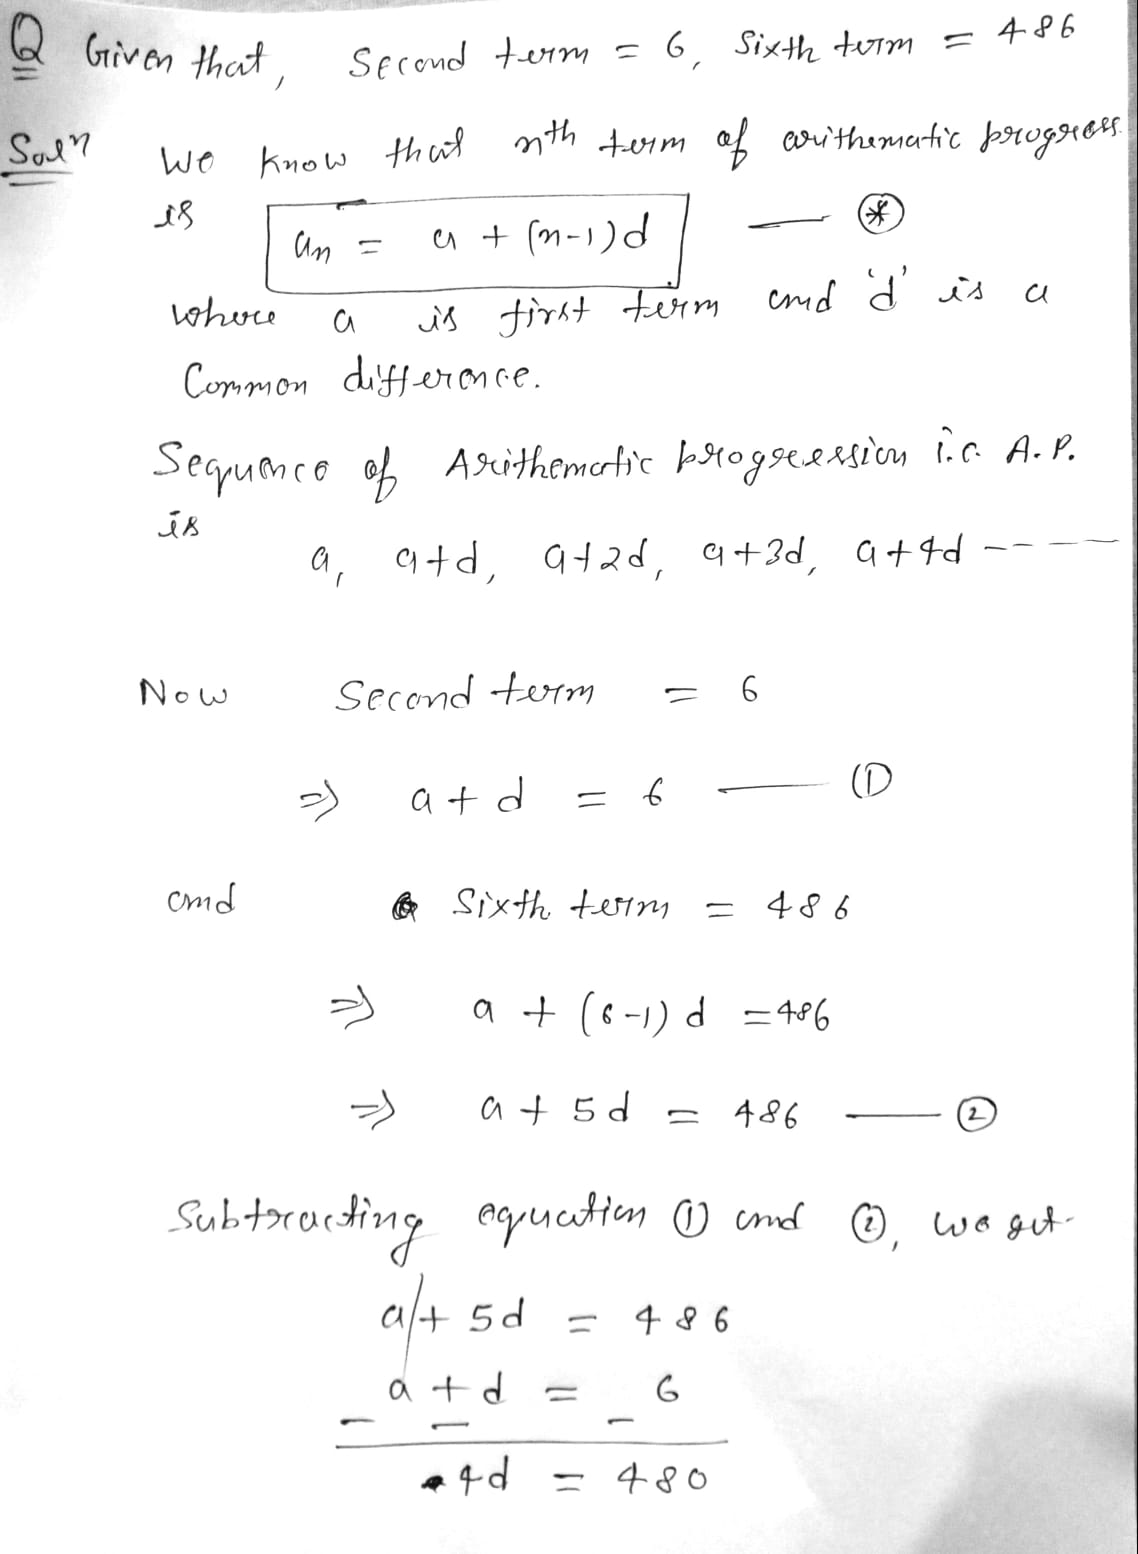 Q Given that, Second term = 6, Sixth term = 486
Soln We know that nth term of arithematic progress
is an = a + (n-1)d — *
where a is first term and 'd' is a
Common difference.
Sequence of Arithematic progression i.e. A.P.
is
a, a+d, a+2d, a+3d, a+4d ----
Now Second term = 6
⇒ a + d = 6 — ①
and Sixth term = 486
⇒ a + (6-1) d = 486
⇒ a + 5d = 486 — ②
Subtracting equation ① and ②, we get
a + 5d = 486
a + d = 6
- - -
4d = 480